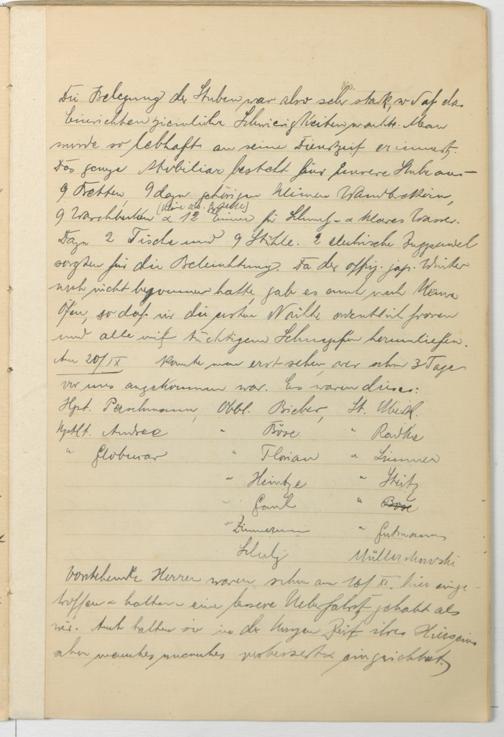 Die Belegung der Stuben war also sehr stark, sodaß das
Einrichten ziemliche Schwierigkeiten machte. Man
wurde so lebhaft an seine Dienstzeit erinnert.
Das ganze Mobiliar besteht für unsere Stube aus
9 Betten, 9 dazu gehörigen kleinen Wandbrettern,
9 Waschbecken 12 Eimern für Schmutz- u. klares Wasser.
Dazu 2 Tische und 9 Stühle. 2 elektrische
sorgten für die Beleuchtung. Da der offiz. jap. Winter
noch nicht begonnen hatte, gab es auch noch keine
Öfen, so daß wir die ersten Nächte ordentlich froren
und alle mit tüchtigem Schnupfen herumliefen.
Am 20/IX konnte man erst sehen wer schon 3 Tage
vor uns angekommen war. Es waren dieses:
Hpt. Perschmann, Oblt. Bieber, Lt.
Kptlt. Andree " Böse " Radke
" " Florian "
" Heintze "
"
" Zimmermann " Gutmann
Schulz Müllerskowski
Vorstehende Herren waren schon am hier einge-
troffen u. hatten eine bessere Überfahrt gehabt als
wir. Auch hatten sie in der kurzen Zeit ihres Hierseins
aber manches eingerichtet